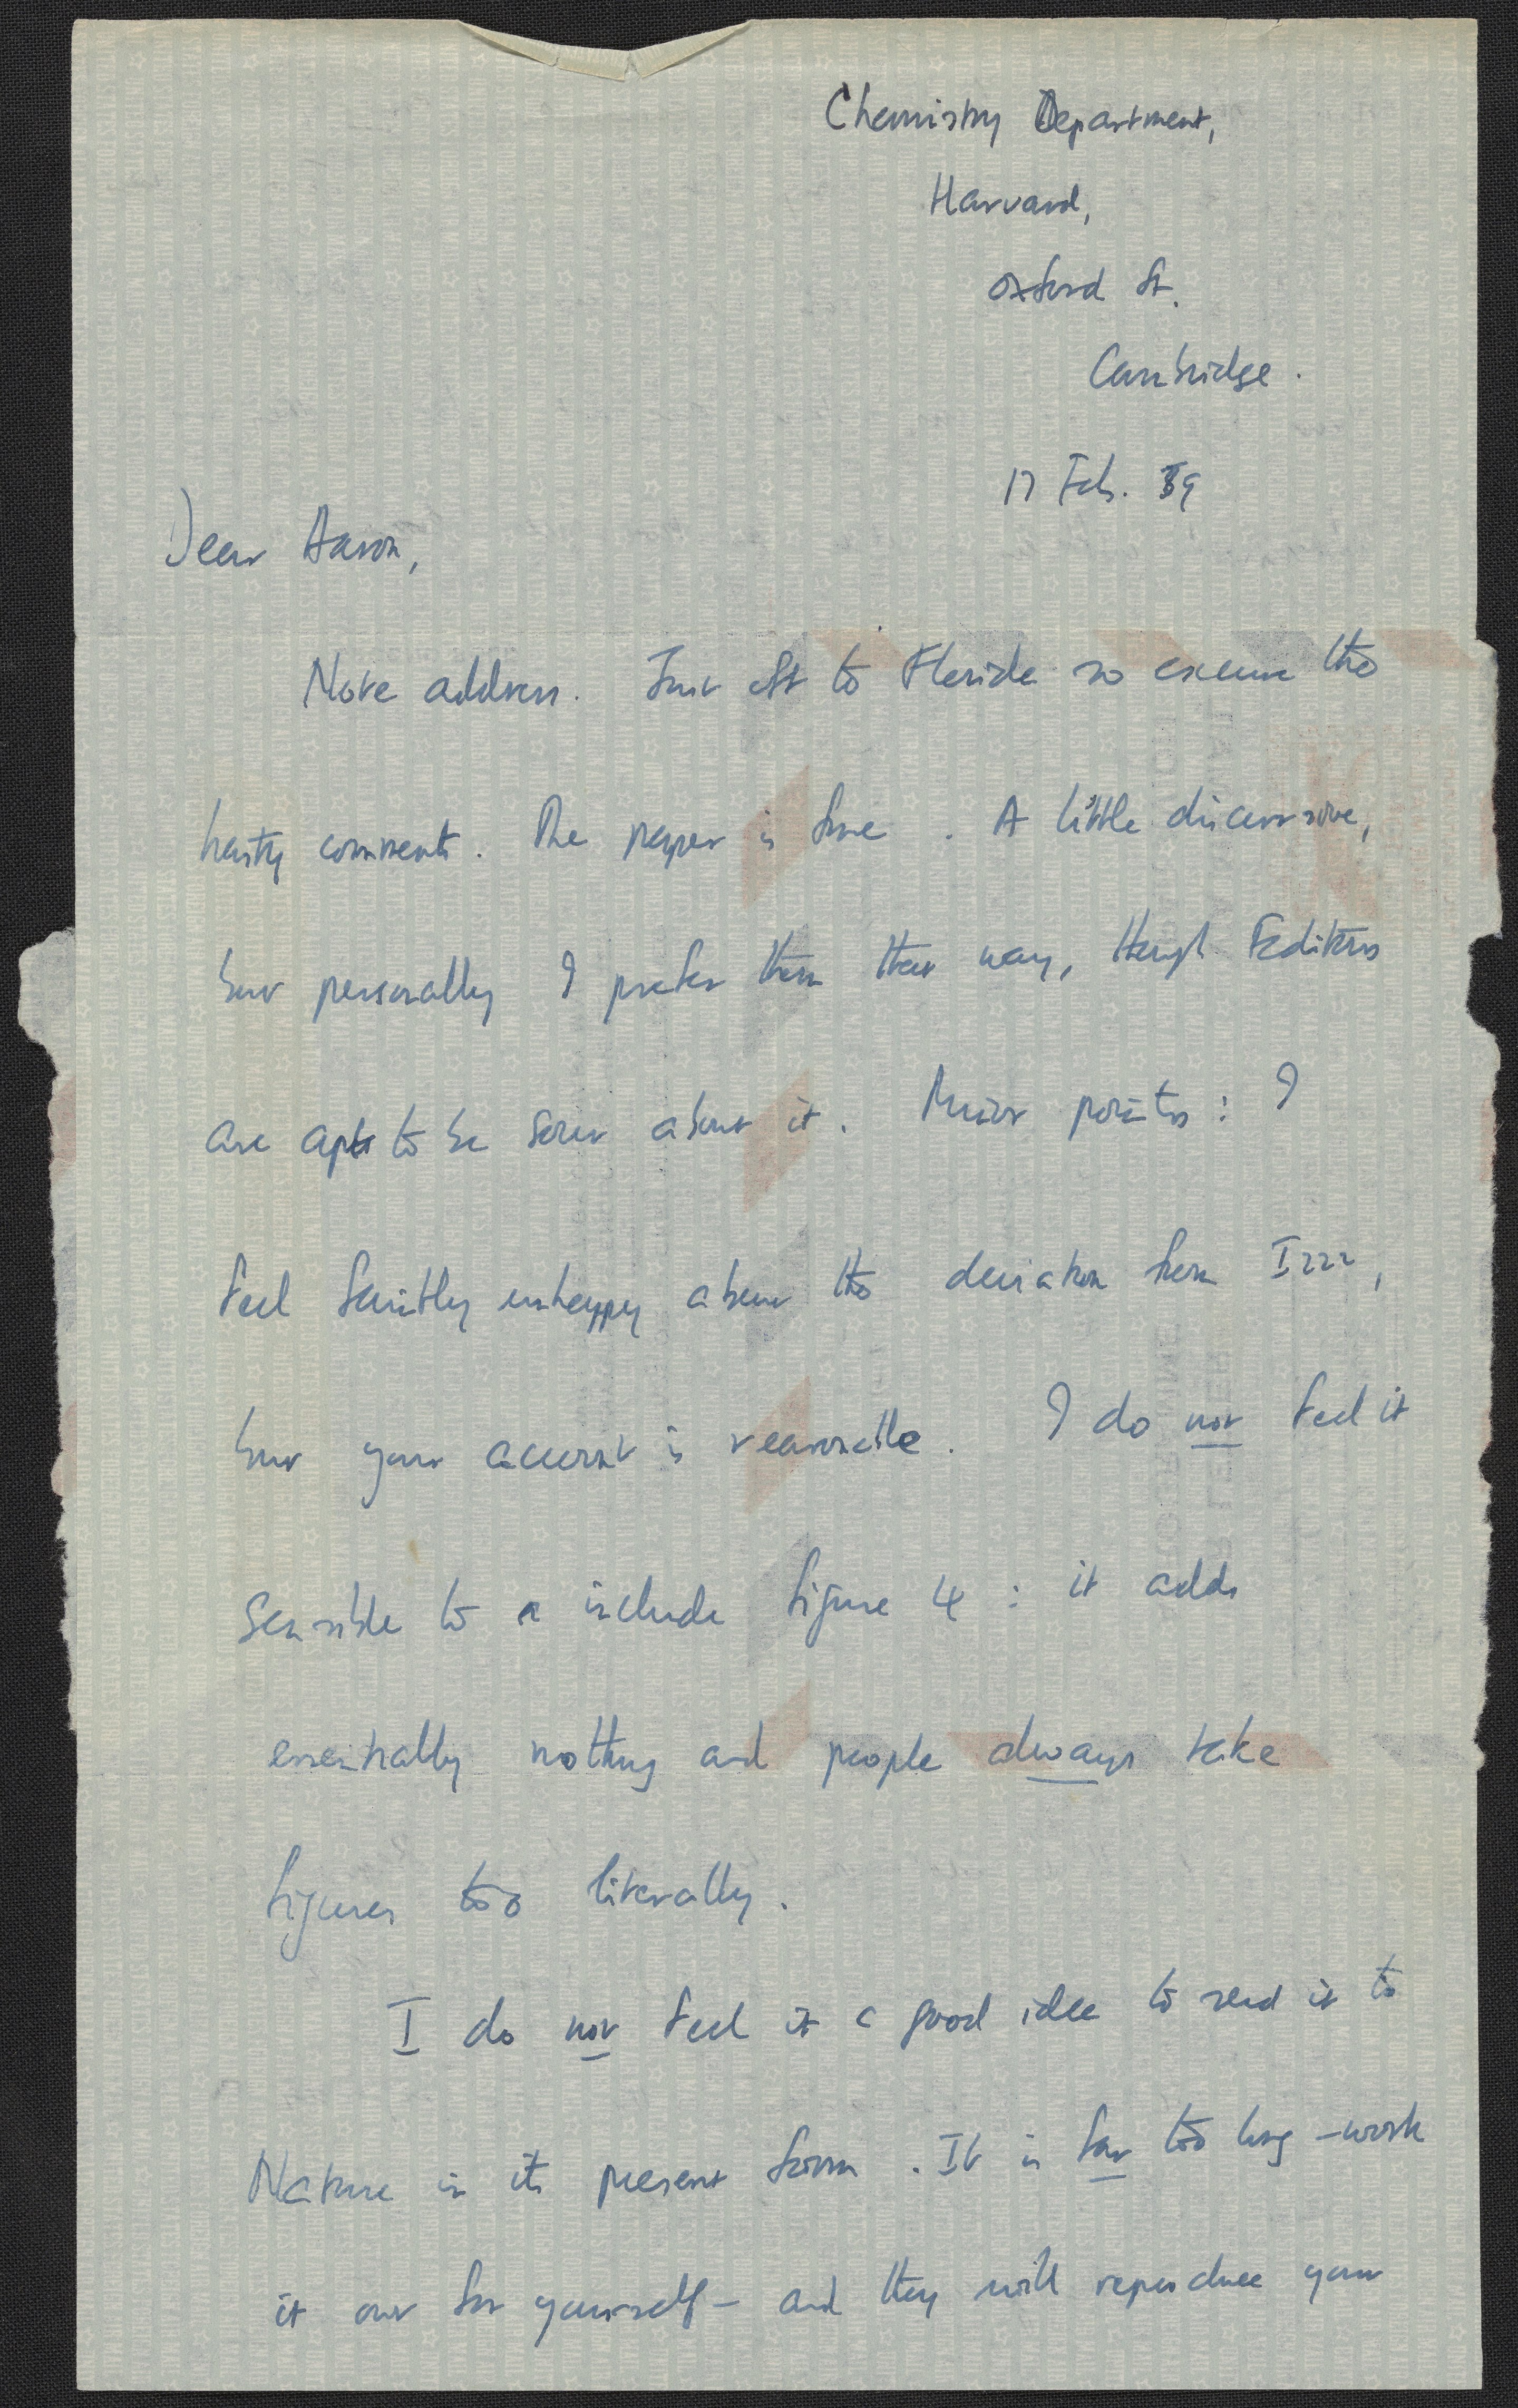 Chemistry Department,
Harvard,
Oxford St.
Cambridge.
17 Feb. 59
Dear Aaron,
Note address. Just off to Florida so excuse the
hasty comments. The paper is fine. A little discursive,
but personally I prefer them that way, though Editors
are apt to be sour about it. Minor points: I
feel faintly unhappy about the deviation from I222,
but your account is reasonable. I do not feel it
sensible to include figure 4: it adds
essentially nothing and people always take
figures too literally.
I do not feel it a good idea to send it to
Nature in its present form. It is far too long - work
it out for yourself - and they will reproduce your